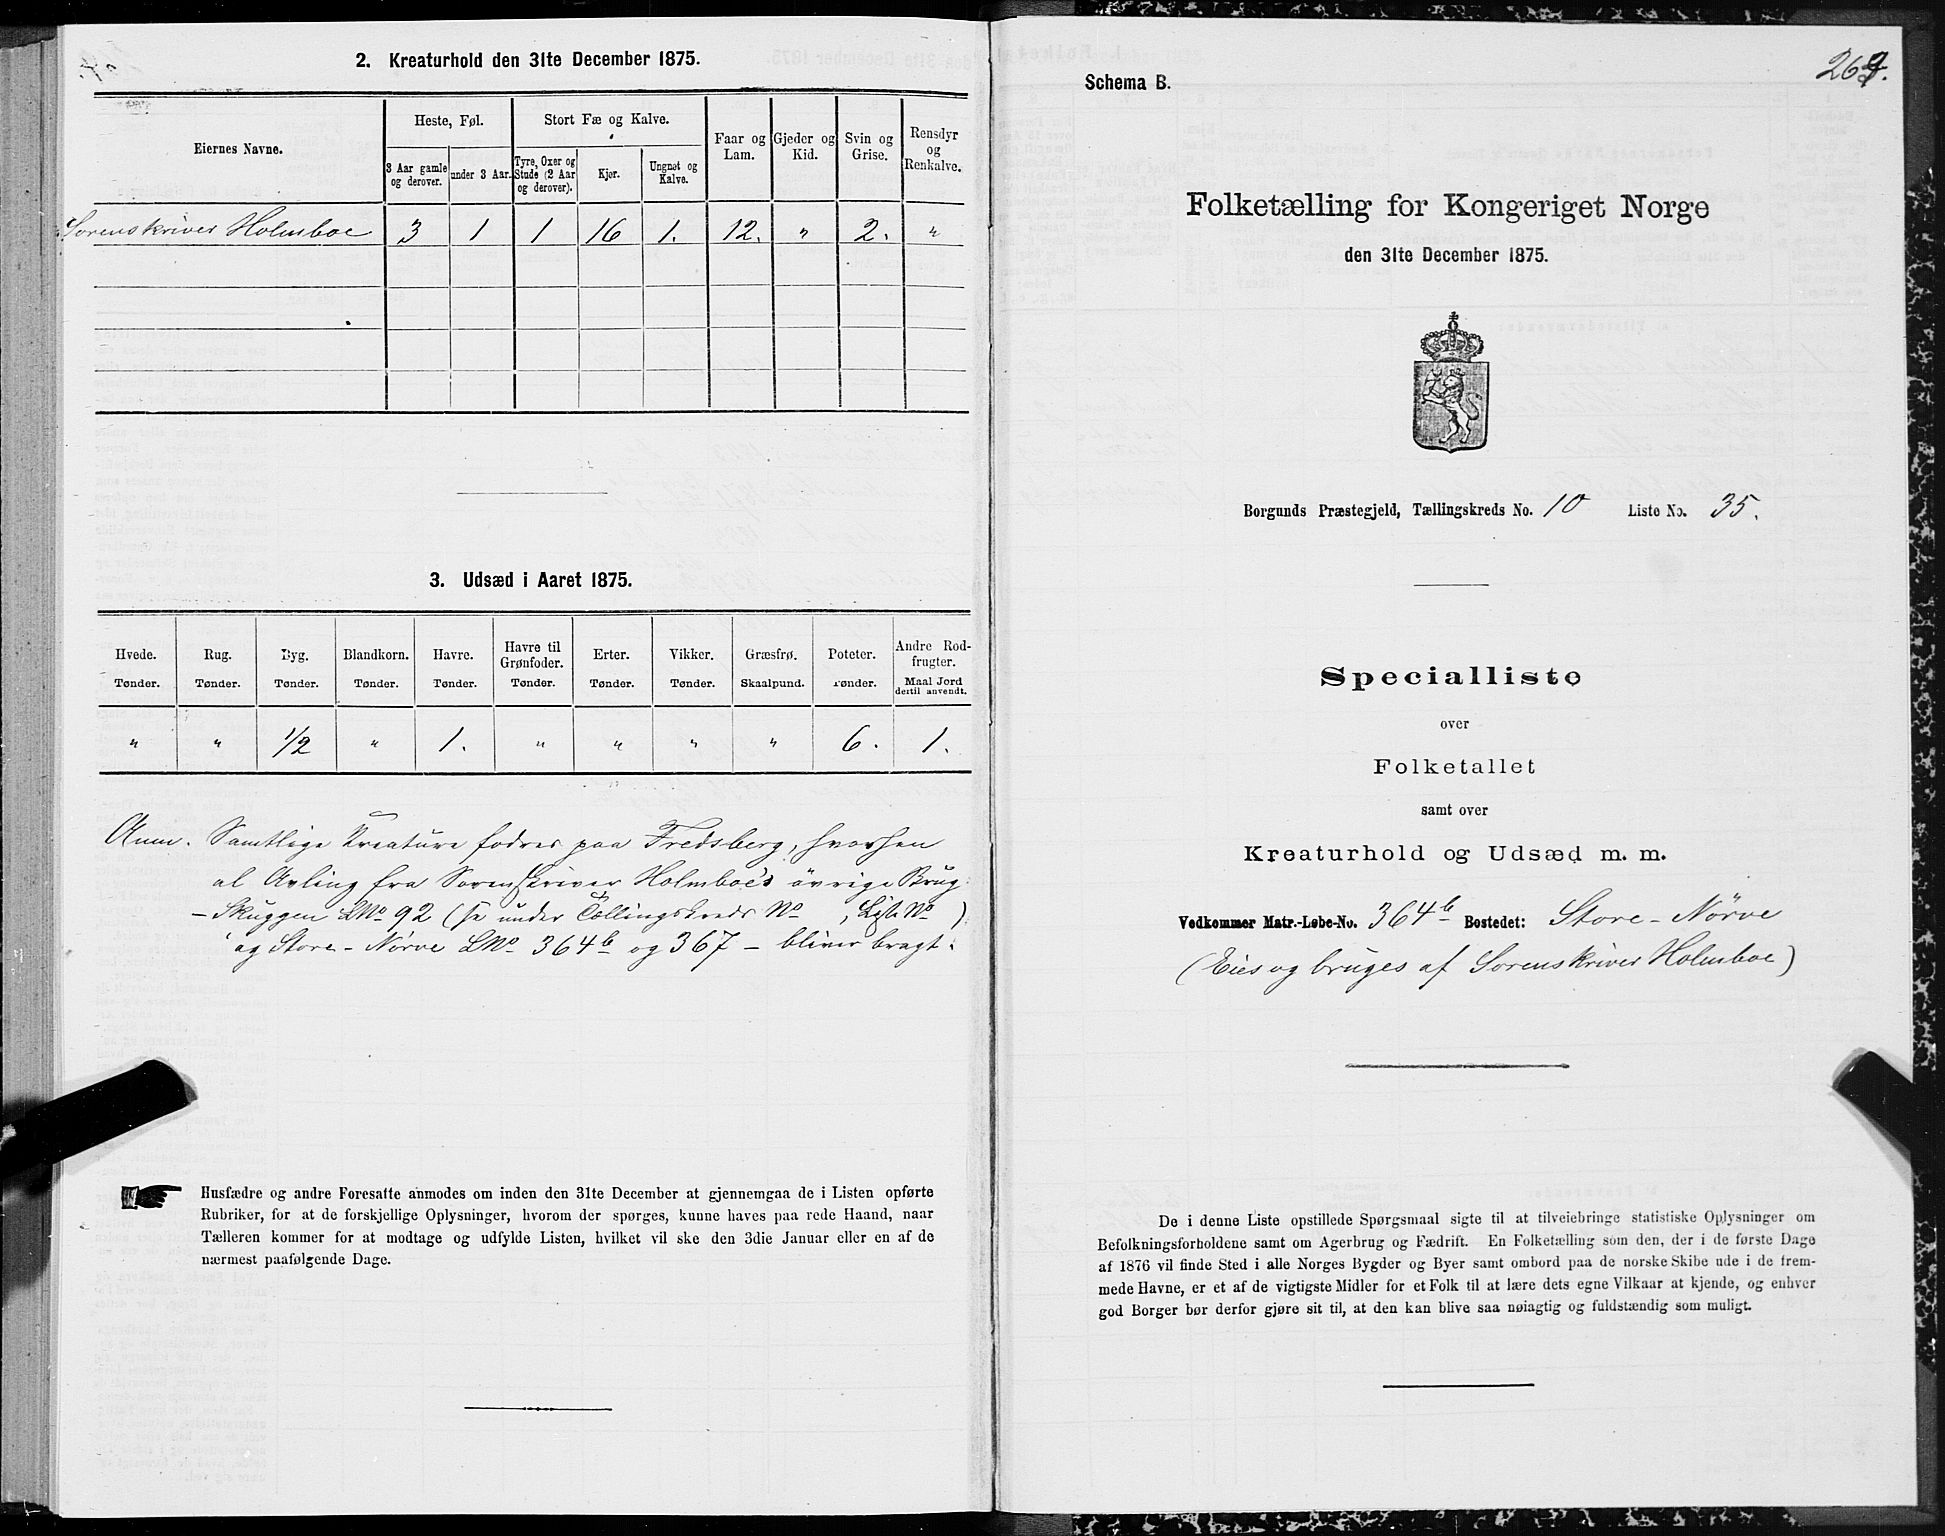 2. Kreaturhold den 31te December 1875.
Eiernes Navne.
Heste, Føl.
3 Aar gamle og derover.
under 3 Aar.
Stort Fæ og Kalve.
Tyre, Oxer og Stude (2 Aar og derover).
Kjør.
Ungnøt og Kalve.
Faar og Lam.
Gjeder og Kid.
Svin og Grise.
Rensdyr og Renkalve.
Sorenskriver Holmboe 3 1 1 16 1. 12. " 2. "
3. Udsæd i Aaret 1875.
Hvede. Rug. Byg. Blandkorn. Havre. Havre til Grønfoder. Erter. Vikker. Græsfrø. Poteter. Andre Rodfrugter.
Tønder. Tønder. Tønder. Tønder. Tønder. Tønder. Tønder. Tønder. Skaalpund. Tønder. Maal Jord dertil anvendt.
" " 1/2 " 1. " " " " 6. 1.
Anm. Samtlige Kreature fodres paa Fredsberg, hvorhen
al Avling fra Sorenskriver Holmboe's øvrige Brug
– Skuggen LNo 92 (se under Tællingskreds No , Liste No )
og Store-Nørve LNo 364b og 367 – bliver bragt.
Husfædre og andre Foresatte anmodes om inden den 31te December at gjennemgaa de i Listen opførte
Rubriker, for at de forskjellige Oplysninger, hvorom der spørges, kunne haves paa rede Haand, naar
Tælleren kommer for at modtage og udfylde Listen, hvilket vil ske den 3die Januar eller en af de
nærmest paafølgende Dage.
Schema B.
Folketælling for Kongeriget Norge
den 31te December 1875.
Borgunds Præstegjeld, Tællingskreds No. 10 Liste No. 35.
Specialliste
over
Folketallet
samt over
Kreaturhold og Udsæd m. m.
Vedkommer Matr.-Løbe-No. 364b Bostedet: Store-Nørve
(Eies og bruges af Sorenskriver Holmboe)
De i denne Liste opstillede Spørgsmaal sigte til at tilveiebringe statistiske Oplysninger om
Befolkningsforholdene samt om Agerbrug og Fædrift. En Folketælling som den, der i de første Dage
af 1876 vil finde Sted i alle Norges Bygder og Byer samt ombord paa de norske Skibe ude i de frem-
mede Havne, er et af de vigtigste Midler for et Folk til at lære dets egne Vilkaar at kjende, og enhver
god Borger bør derfor gjøre sit til, at den kan blive saa nøiagtig og fuldstændig som muligt.